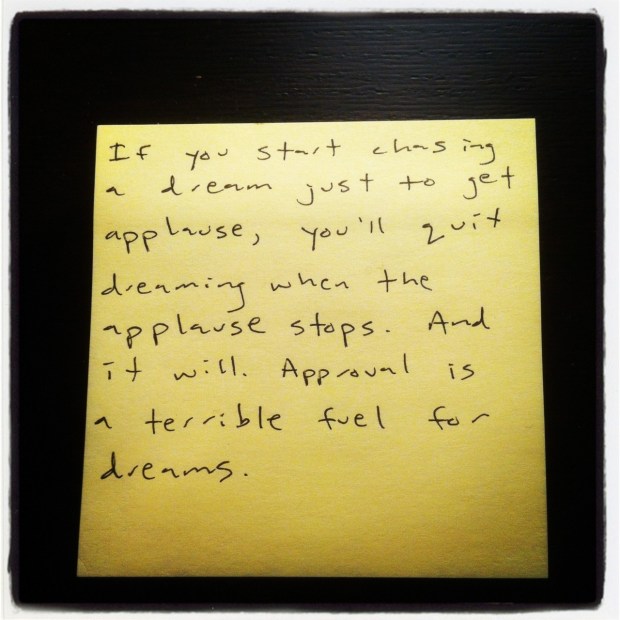 If you start chasing
a dream just to get
applause, you'll quit
dreaming when the
applause stops. And
it will. Approval is
a terrible fuel for
dreams.